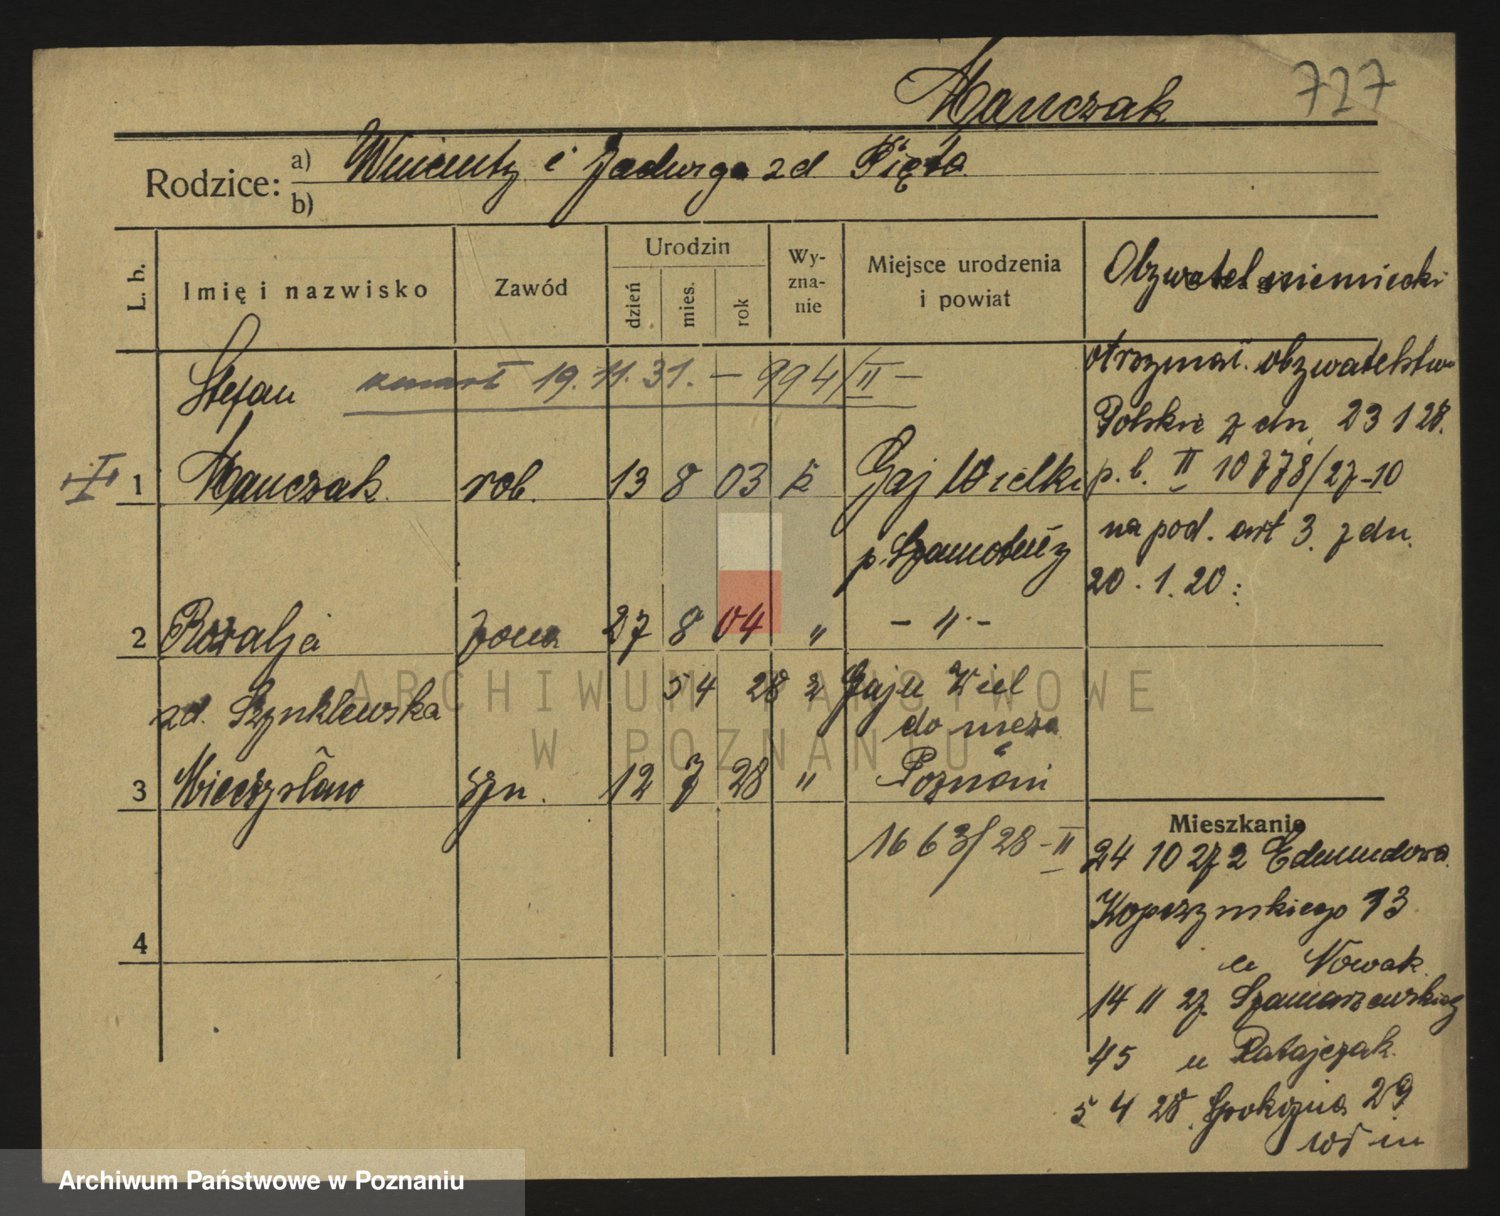 Mańczak 727
Rodzice: a) Wincenty i Jadwiga zd Pięta
b)
L. b. Imię i nazwisko Zawód Urodzin dzień mies. rok Wy-zna-nie Miejsce urodzenia i powiat
Obywatel niemiecki
Stefan zmarł 19.11.31. – 994/II –
otrzymał obywatelstwo
Polskie z dn. 23 1 28.
1 Mańczak rob. 13 8 03 k Gaj Wielki
p. b. II 10778/27-10
na pod. art 3. z dn.
p. Szamotuły
20. 1. 20:
2 Rozalja żona 27 8 04 " – " –
zd. Szynklewska 5 4 28 z Gaju Wiel
do męża
3 Mieczysław syn. 12 7 28 " Poznań
Mieszkanie
1663/28-II
24 10 27 z Edmundowa
Kopczyńskiego 13
4
u Nowak
14 11 27 Szamarzewskieg
45 u Ratajczak
5 4 28. Spokojna 29
ARCHIWUM PAŃSTWOWE
W POZNANIU
Archiwum Państwowe w Poznaniu